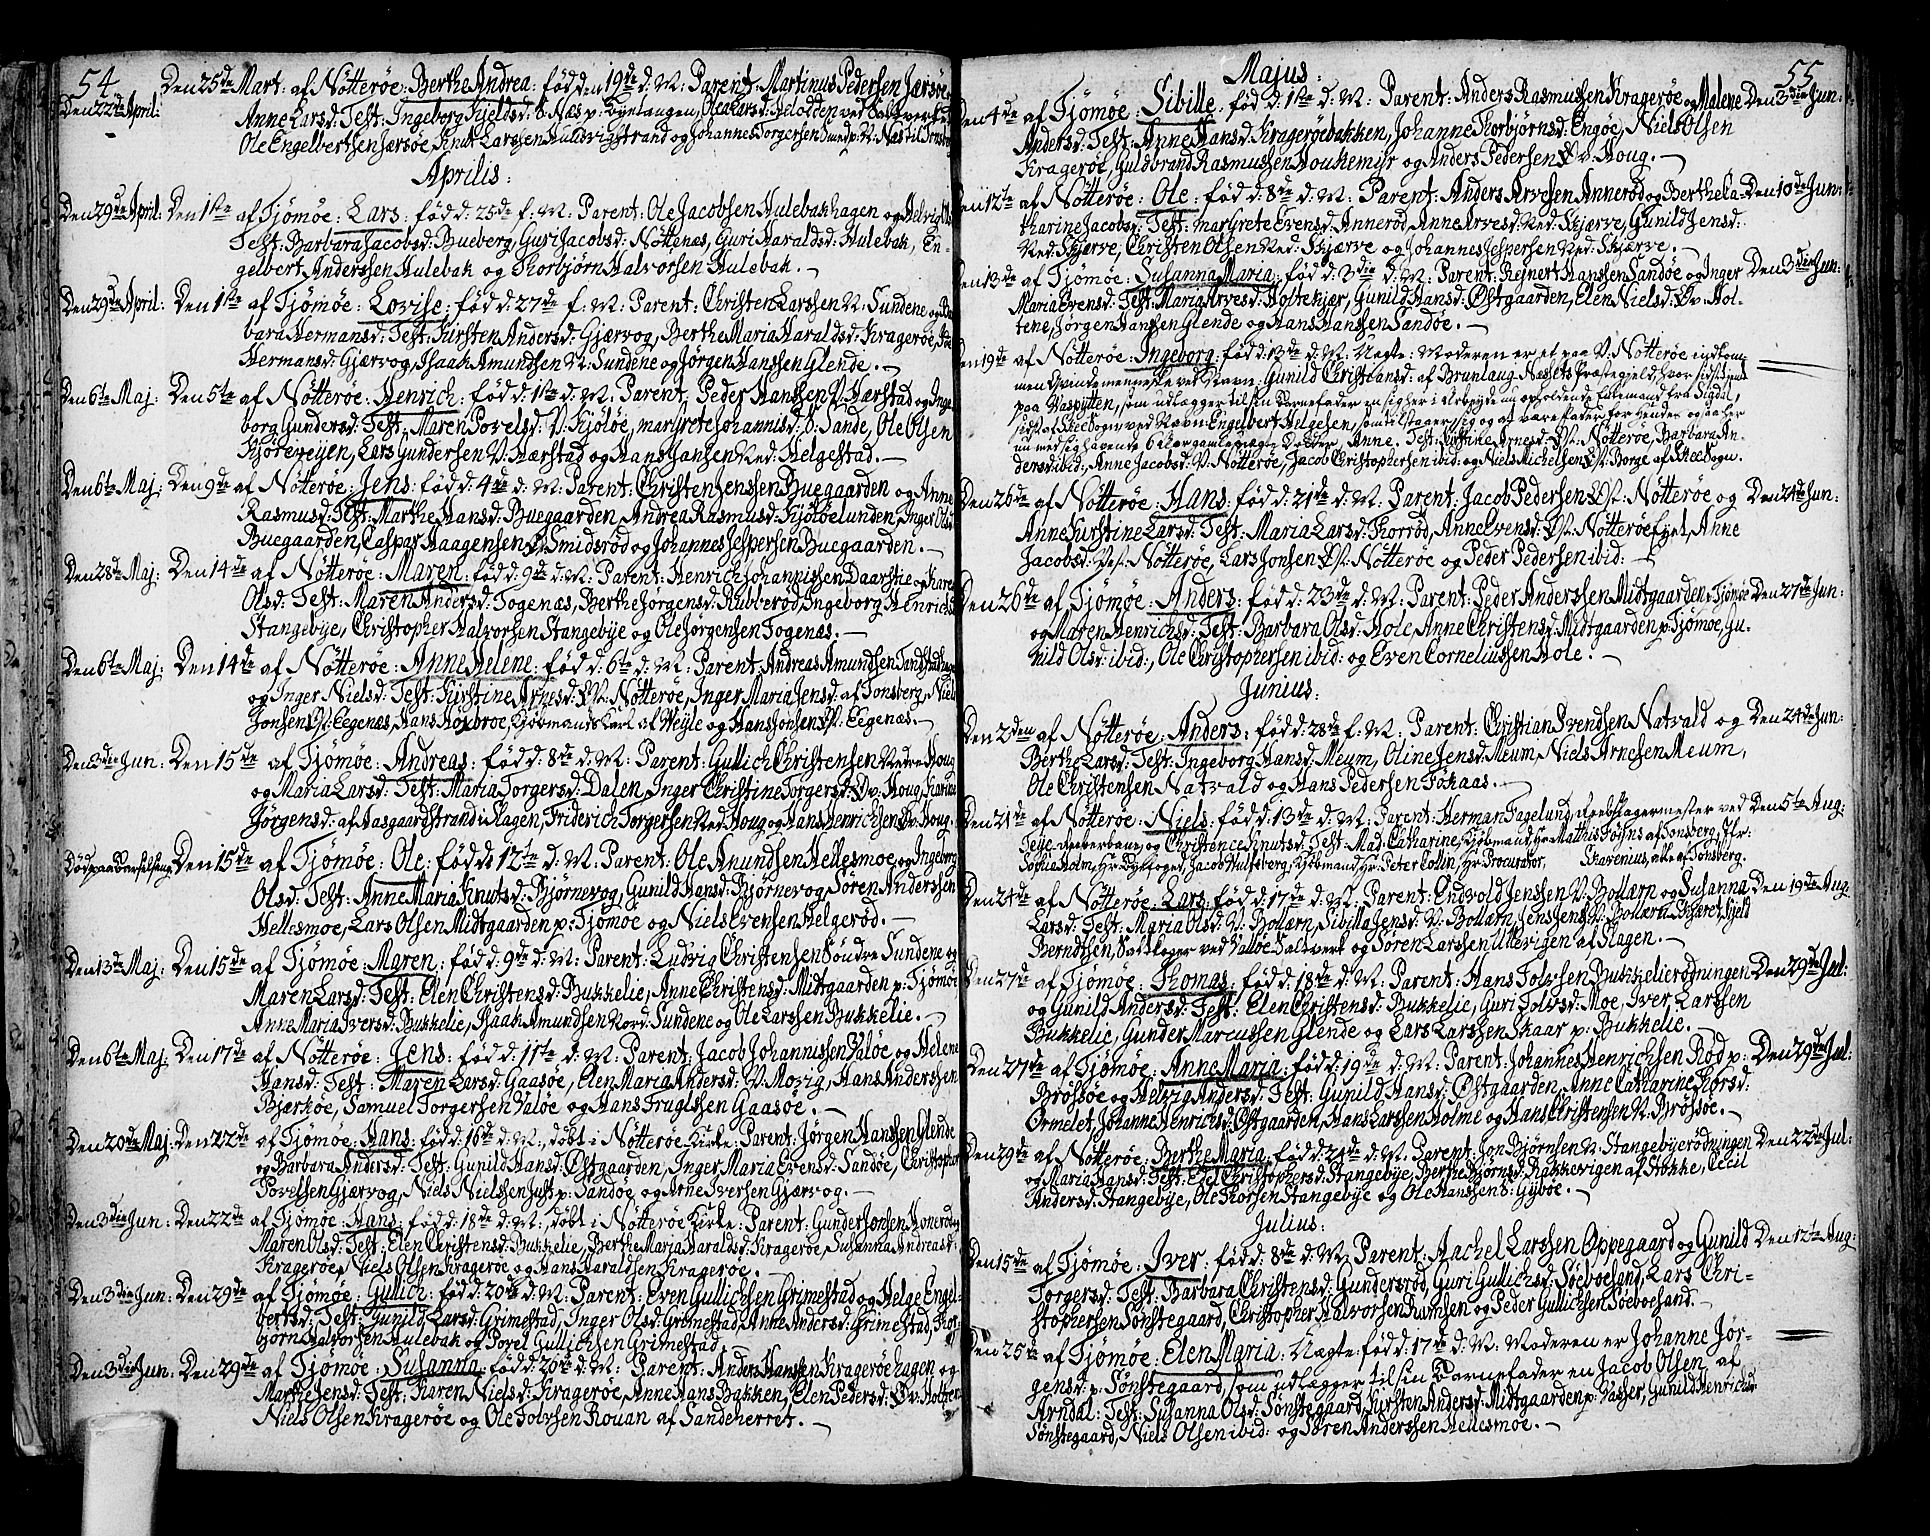 54
Den 25de Mart: af Nötteröe: Berthe Andrea: född: n 19de d: M: Parent: Martinus Pedersen Jærsöe
Den 22de April: Anne Larsd: Test: Ingeborg Kjeldsd: S: Næs p:
Ole Engelbertsen Jærsöe, Knut Larssen Hulbvigstrand og Johannes Jörgensen
Aprilis:
Den 29de April: Den 1ste af Tjömöe: Lars: född: 25de f: M: Parent: Ole Jacobsen Hulebakhagen og Helvig
Test: Barbara Jacobsd: Bueberg, Guri Jacobsd: Nöttenæs, Guri Haraldsd: Hulebak, En-
gelbert Anderssen Hulebak og Thorbjörn Halvorsen Hulebak. –
Den 29de April: Den 1ste af Tjömöe: Lovise: född: 27de f: M: Parent: Christen Larssen N: Sundene og Bar
bara Hermansd: Test: Kirsten Andersd: Gjærvog, Berthe Maria Haraldsd: Krageröe,
Hermansd: Gjærvog, Isaak Amundsen N: Sundene og Jörgen Hanssen Glende. –
Den 6te Maj: Den 5te af Nötteröe: Henrich: född: 1ste d: M: Parent: Peder Hanssen V: Hærstad og Inge
borg Gundersd: Test: Maren Povelsd: V: Kjölöe, Margrete Johannisd: S: Sande, Ole Olsen
Kjörevejen, Lars Gundersen V: Hærstad og Hans Jansen Ned: Helgestad. –
Den 6te Maj: Den 9de af Nötteröe: Jens: född: 4de d: M: Parent: Christen Jenssen Buegaarden og Anne
Rasmusd: Test: Marthe Hansd: Buegaarden, Andrea Rasmusd: Kjölöelunden, Inger Olsd:
Buegaarden, Caspar Haagensen Ö: Smidsröd og Johannes Jespersen Buegaarden. –
Den 28de Maj: Den 14de af Nötteröe: Maren: född: 9de d: M: Parent: Henrich Johannissen Daarstie og Karen
Olsd: Test: Maren Andersd: Togenæs, Berthe Jörgensd: Rubberöd, Ingeborg Henrichsd:
Stangebÿe, Christopher Halvorsen Stangebÿe og Ole Jörgensen Togenæs. –
Den 6te Maj: Den 14de af Nötteröe: Anne Helene: född: 6te d: M: Parent: Andreas Amundsen
og Inger Nielsd: Test: Kirstine Arnesd: Nötteröe, Inger Maria Jensd: af Tonsberg, Niels
Jonsen Eegenæs, Hans Höxbroe, Kjöbmands Karl af Weÿle og Hans Jonsen Eegenæs. –
Den 3die Jun: Den 15de af Tjömöe: Andreas: född: 8de d: M: Parent: Gullich Christensen Nedre Houg
og Maria Larsd: Test: Maria Torgersd: Dalen, Inger Christine Torgersd: Öv: Houg, Karine
Jörgensd: af Aasgaardstrand i Slagen, Friderich Torgersen Ned: Houg og Hans Henrichsen Öv: Houg.
Den 15de af Tjömöe: Ole: född: 12te d: M: Parent: Ole Anundsen Hellesmoe, og Ingeborg
Olsd: Test: Anne Maria Knutsd: Bjørnevog, Gunild Hansd: Bjørnevog, Sören Anderssen
Hellesmoe, Lars Olsen Midtgaarden p: Tjömöe og Niels Evensen Helgeröd. –
Den 13de Maj: Den 15de af Tjömöe: Maren: född: 9de d: M: Parent: Ludvig Christensen Söndre Sundene og
Maren Larsd: Test: Elen Christensd: Bukkelie, Anne Christensd: Midtgaarden p: Tjömöe,
Anne Maria Iversd: Bukkelie, Isaak Amundsen Nord: Sundene og Ole Larssen Bukkelie. –
Den 6te Maj: Den 17de af Nötteröe: Jens: född: 11te d: M: Parent: Jacob Johannissen Valöe og Helene
Hansd: Test: Maren Larsd: Gaasöe, Elen Maria Andersd: V: Mozig, Hans Anderssen
Bjærköe, Samuel Torgersen Valöe og Hans Gaasöe. –
Den 20de Maj: Den 22de af Tjömöe: Hans: född: 16de d: M:, döbt i Nötteröe Kirke: Parent: Jörgen Hanssen Glende
og Barbara Andersd: Test: Gunild Hansd: Östgaarden, Inger Maria Evensd: Sandöe, Christopher
Povelsen Gjærvog, Niels Nielssen Just p: Sandöe og Arne Iversen Gjærvog. –
Den 3die Jun: Den 22de af Tjömöe: Hans: född: 18de d: M:, döbt i Nötteröe Kirke: Parent: Gunder Jonsen Honeröd og
Maren Olsd: Test: Elen Christensd: Bukkelie, Berthe Maria Haraldsd: Kragerøe, Susanna Andreasd:
Kragerøe, Niels Olsen Kragerøe og Hans Haraldsen Kragerøe. –
Den 3die Jun: Den 29de af Tjömöe: Gullich: född: 20de d: M: Parent: Even Gullichsen Grimestad og Helge Engel-
bertsd: Test: Gunild Larsd: Grimestad, Inger Olsd: Grimestad, Anne Andersd: Grimestad, Thor-
björn Halvorsen Hulebak og Povel Gullichsen Grimestad.
Den 3die Jun: Den 29de af Tjömöe: Susanna: född: 26de d: M: Parent: Anders Hanssen Kragerøehagen og
Marthe Jensd: Test: Karen Nielsd: Kragerøe, Anne Hans Bakken, Elen Pedersd: Öv: Holtene
Niels Olsen Kragerøe og Ole Tolvsen Rouan af Sandeherret. –
55
Majus:
Den 4de af Tjömöe: Sibille: född: 1ste d: M: Parent: Anders Rasmussen Kragerøe og Malene Den 3die Jun:
Andersd: Test: Anne Hansd: Kragerøebakken, Johanne Thorbjørnsd: Engöe, Niels Olsen
Kragerøe, Guldbrand Rasmussen Houkemyr og Anders Pedersen Öv: Houg. –
Den 12te af Nötteröe: Ole: född: 8de d: M: Parent: Anders Arvesen Anneröd og Berthe Ca- Den 10de Jun:
tharine Jacobsd: Test: Margrete Evensd: Anneröd, Anne Arvesd: Ned: Skjærve, Gunild Jensd:
Ned: Skjærve, Christen Olsen Ned: Skjærve og Johannes Jespersen Ned: Skjærve. –
Den 13de af Tjömöe: Susanna Maria: född: 3die d: M: Parent: Rejnert Hanssen Sandöe og Inger Den 3die Jun:
Maria Evensd: Test: Maria Arvesd: Holtekjær, Gunild Hansd: Östgaarden, Elen Nielsd: Öv: Hol-
tene, Jörgen Hanssen Glende og Hans Hanssen Sandöe. –
Den 19de af Nötteröe: Ingeborg: född: 13de d: M: Uægte: Moderen er et paa V: Nötteröe indkom-
men Qvindemenneske ved Navn: Gunild Christiansd: af Brunlaug Næssets Præstegjeld, hvor sidst
paa Vaspytten, som udlægger til sin Barnefader en sig her i Arbejde
sidst af Skeebogn ved Navn: Engelbert Helgesen, som
nu ved sig havende 6 Aar gamle uægte Datter, Anne. Test: Kirstine Arnesd: Nötteröe, Barbara An-
dersd: ibid:, Anne Jacobsd: V: Nötteröe, Jacob Christophersen ibid: og Niels Michelsen Borge af Skee Sogn.
Den 26de af Nötteröe: Hans: född: 21de d: M: Parent: Jacob Pedersen Nötteröe og Den 24de Jun:
Anne Kirstine Larsd: Test: Maria Larsd: Thorröd, Anne Evensd: Nötteröe, Anne
Jacobsd: Nötteröe, Lars Jonsen Nötteröe og Peder Pedersen ibid: –
Den 26de af Tjömöe: Anders: född: 23de d: M: Parent: Peder Anderssen Midtgaarden p: Tjömöe Den 27de Jun:
og Maren Henrichsd: Test: Barbara Olsd: Hole, Anne Christensd: Midtgaarden p: Tjömöe, Gu-
nild Olsd: ibid:, Ole Christophersen ibid: og Even Corneliussen Hole. –
Junius:
Den 2den af Nötteröe: Anders: född: 28de f: M: Parent: Christian Svendsen Natvald og Den 24de Jun:
Berthe Larsd: Test: Ingeborg Hansd: Meum, Oline Jensd: Meum, Niels Arnesen Meum,
Ole Christensen Natvald og Hans Pedersen Fokaas. –
Den 21de af Nötteröe: Niels: född: 13de d: M: Parent: Herman Fagelund, Reebslagermester ved Den 5te Aug:
Teije Reeberbane og Christence Knutsd: Test: Mad: Catharine, Kjöbmand Hr: Mathis Föyns af Tonsberg,
Sophia Holm, Hr: Byefoged, Jacob Hvitberg, Kjöbmand Hr: Peter Collin, Hr: Procurator, Skavenius, alle af Tonsberg.
Den 24de af Nötteröe: Lars: född: 17de d: M: Parent: Endvold Jenssen V: Bollærn og Susanna Den 19de Aug
Larsd: Test: Maria Olsd: V: Bollærn, Sibilla Jensd: V: Bollærn, Kjeld
Berndtsen, ved Valöe Saltverk og Sören Larssen Ullevigen af Slagen. –
Den 27de af Tjömöe: Thomas: född: 18de d: M: Parent: Hans Tolvsen Bukkelierödningen Den 29de Jul:
og Gunild Andersd: Test: Elen Christensd: Bukkelie, Guri Tolvsd: Moe, Iver Larssen
Bukkelie, Gunder Marcussen Glende og Lars Larssen Skaar p: Bukkelie. –
Den 27de af Tjömöe: Anne Maria: född: 19de d: M: Parent: Johannes Henrichsen Röd p: Den 29de Jul:
Brössöe og Helvig Andersd: Test: Gunild Hansd: Östgaarden, Anne Catharine Thorsd:
Ormelet, Johanne Henrichsd: Östgaarden, Hans Larssen Holme og Hans Christensen N: Brössöe. –
Den 29de af Nötteröe: Berthe Maria: född: 24de d: M: Parent: Jon Björnsen N: Stangebÿerödningen Den 22de Jul:
og Maria Hansd: Test: Edel Christophersd: Stangebÿe, Berthe Björnsd: Rakkevigen af Stokke, Cecil
Andersd: Stangebÿe, Ole Thorsen Stangebÿe og Ole Hanssen S: Gÿböe. –
Julius:
Den 15de af Tjömöe: Iver: född: 8de d: M: Parent: Aachel Larssen Oppegaard og Gunild Den 12te Aug:
Torgersd: Test: Barbara Christensd: Gundersröd, Guri Gullichsd: Söeboesand, Lars Chri-
stophersen Sönstegaard, Christopher Halvorsen og Peder Gullichsen Söeboesand. –
Den 25de af Tjömöe: Elen Maria: Uægte: född: 17de d: M: Moderen er Johanne Jör-
gensd: p: Sönstegaard, som udlægger til sin Barnefader en Jacob Olsen af
Arndal: Test: Susanna Olsd: Sönstegaard, Kirsten Andersd: Midtgaarden p: Vasser, Gunild Henrichsd:
Sönstegaard, Niels Olsen ibid: og Sören Anderssen Hellesmoe. –